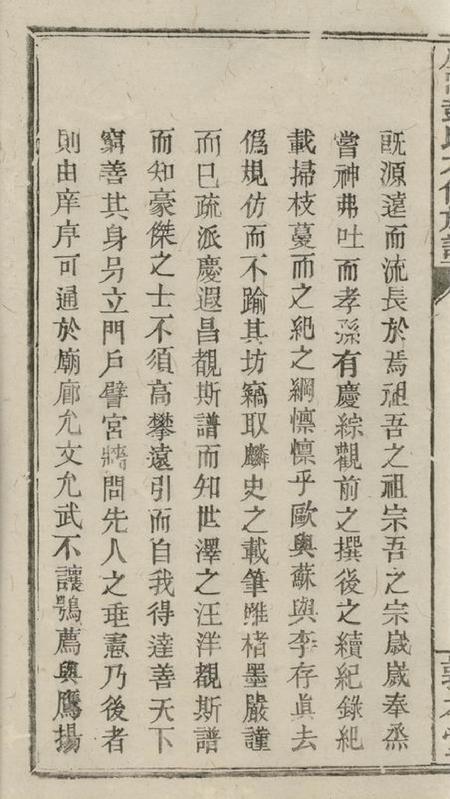 既源遠而流長於焉祖吾之祖宗吾之宗歲歲奉烝
嘗神弗吐而孝孫有慶綜觀前之撰後之續紀錄紀
載掃枝蔓而之紀之綱懍懍乎歐與蘇與李存眞去
僞規仿而不踰其坊竊取麟史之載筆雖楮墨嚴謹
而已疏派慶遐昌覩斯譜而知世澤之汪洋覩斯譜
而知豪傑之士不須高攀遠引而自我得達善天下
窮善其身另立門戶譬宮牆問先人之垂憲乃後者
則由庠序可通於廟廊允文允武不讓鶚薦與鷹揚